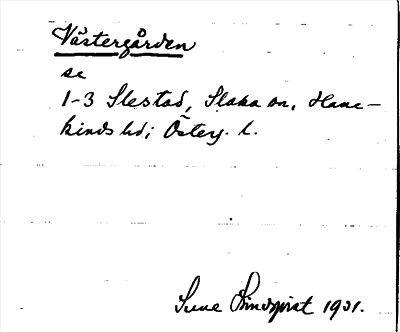 Västergården
se
1-3 Slestad, Slaka sn, Hane-
kinds hd, Österg. l.
Sune Lindqvist 1931.